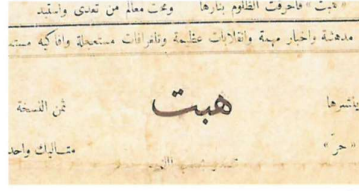 هبت " فأحرقت الظلوم بنارها ومحت معالم من تعدى واستبد
مدهشة واخبار مهمة وانقلابات عظيمة وتلغرافات مستعجلة وافاكيه
ناشرها هبت ثمن النسخة
« حرّ » متــاليك واحد